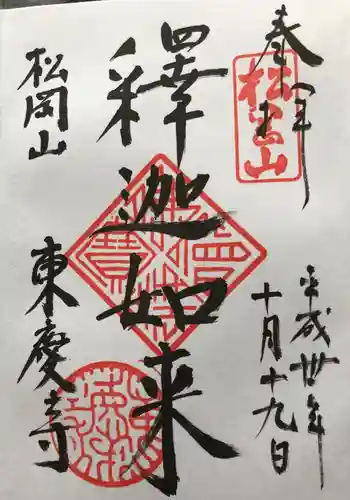 奉拝
松岡山
平成卅年
十月十九日
釋迦如来
松岡山
東慶寺